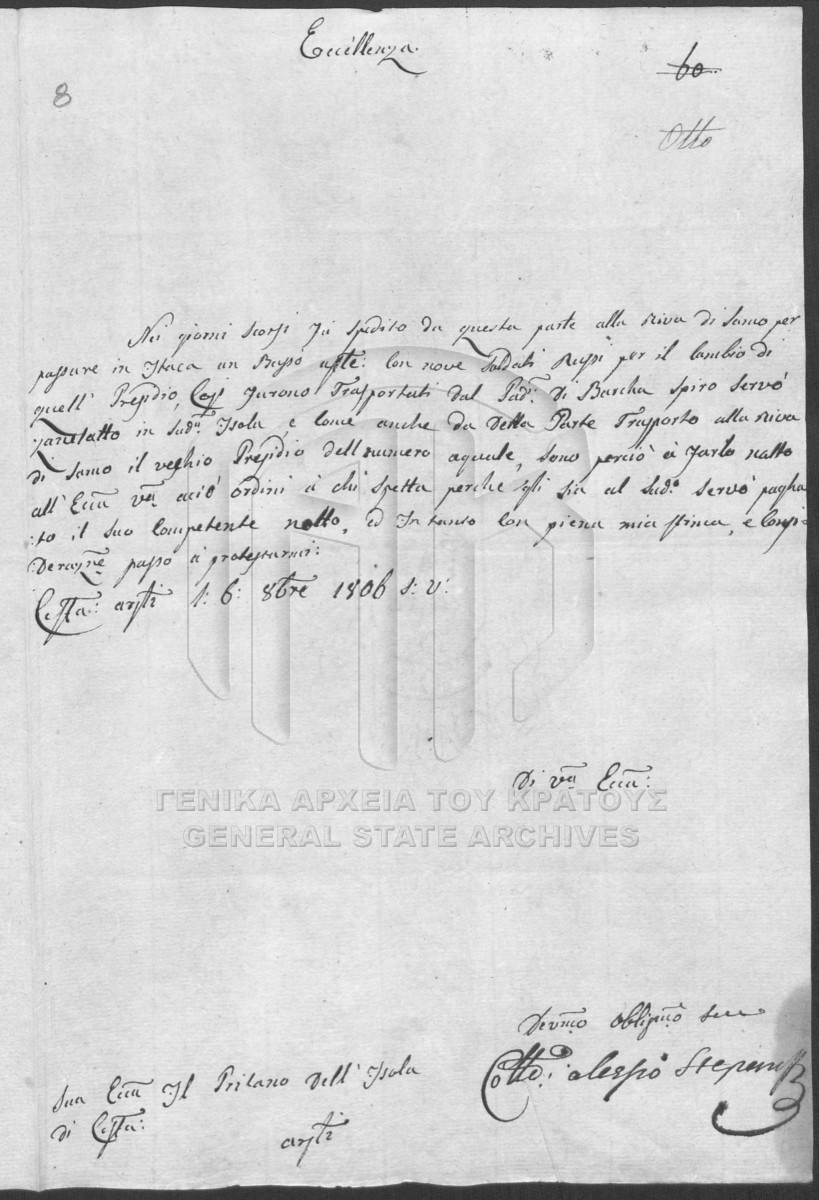 Eccellenza.
60
8
Otto
Nei giorni scorsi fù spedito da questa parte alla Riva di Samo per
passare in Itaca un Basso uffte: con nove Soldati Russi per il Cambio di
quell' Presidio, Così furono Trasportati dal Padn: di Barcha Spiro Servò
in Sudn: Isola, e come anche da Detta Parte Trasporto alla Riva
di Samo il vechio Presidio dell numero aquale, sono perciò à farlo notto
all' Ecca Va aciò ordini à chi spetta perche egli sia al Sudo: Servò pagha
:to il suo Competente nollo, ed In tanto con piena mia stima, e Consi:
Derazne passo à protestarmi:
Ceffa: li 6: 8bre 1806 S: V:
Di Va Ecca:
ΓΕΝΙΚΑ ΑΡΧΕΙΑ ΤΟΥ ΚΡΑΤΟΥΣ
GENERAL STATE ARCHIVES
Devmo Obligmo
Alessio
Sua Ecca Il Pritano Dell' Isola
di Ceffa: